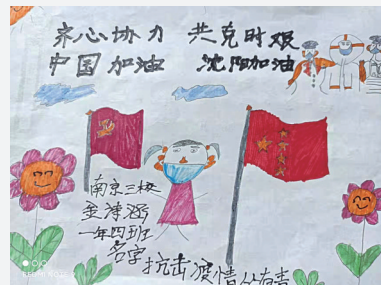 齐心协力 共克时艰
中国加油 沈阳加油
南京三校
一年四班
名字
抗击疫情